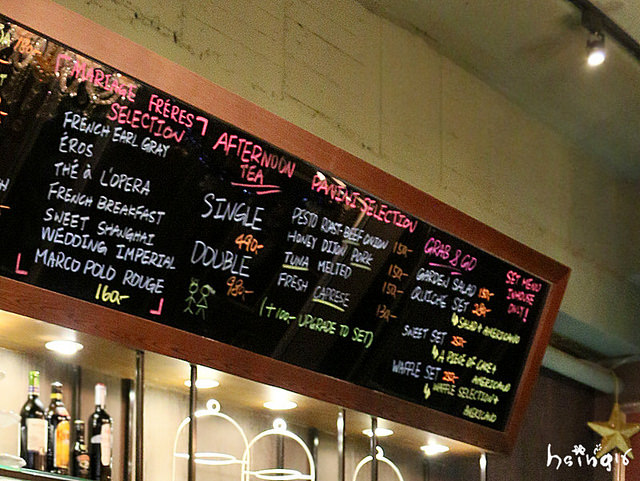 「MARIAGE FRÉRES
SELECTION」
FRENCH EARL GRAY
ÉROS
THÉ À L'OPERA
FRENCH BREAKFAST
SWEET SHANGHAI
WEDDING IMPERIAL
MARCO POLO ROUGE
160-
AFTERNOON
TEA
SINGLE
490-
DOUBLE
PANINI SELECTION
PESTO ROAST BEEF ONION 150-
HONEY DIJON PORK
150-
TUNA MELTED
150-
FRESH CAPRESE
130-
(+100- UPGRADE TO SET)
GRAB & GO
GARDEN SALAD 150-
QUICHE SET
SALAD + AMERICANO
SWEET SET
A PIECE OF CAKE +
AMERICANO
WAFFLE SET
WAFFLE SELECTION +
AMERICANO
SET MENU
INHOUSE
ONLY!
hsing16